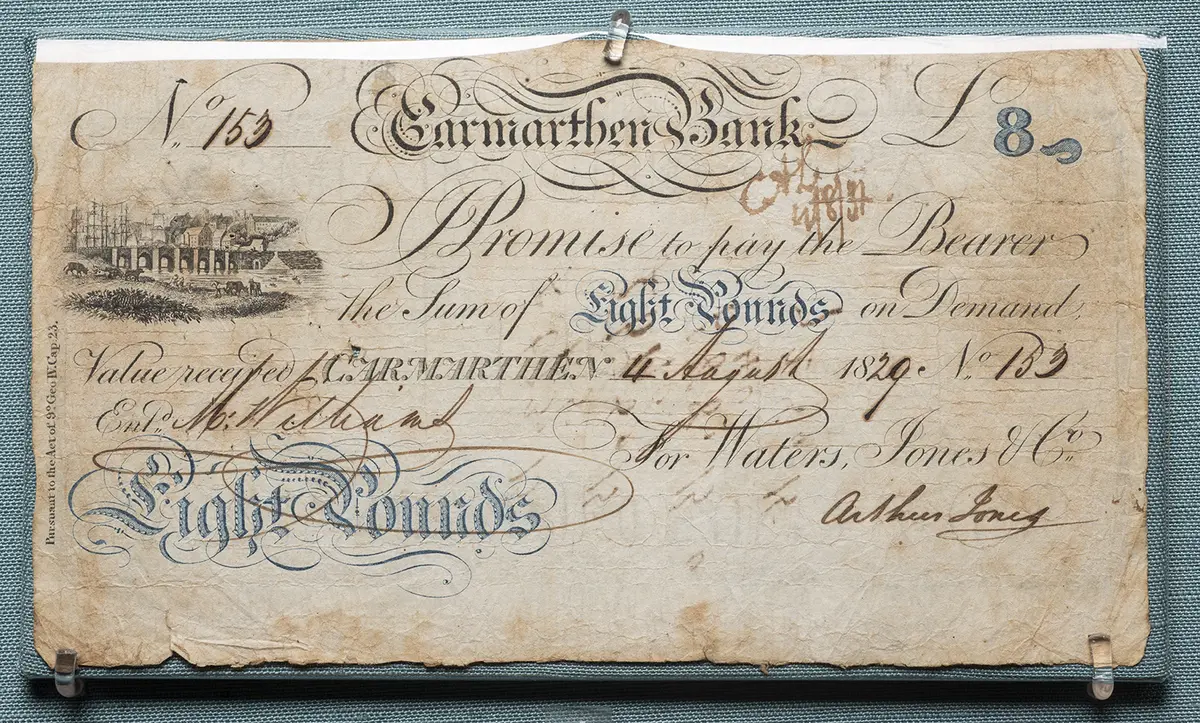 No. 153 Carmarthen Bank £ 8
I Promise to pay the Bearer
the Sum of Eight Pounds on Demand,
Value received CARMARTHEN 4 August 1829 No. 153
Entd. M. Williams
For Waters, Jones & Co.
Eight Pounds
Arthur Jones
Pursuant to the Act of 9o. Geo. IV. Cap. 23.